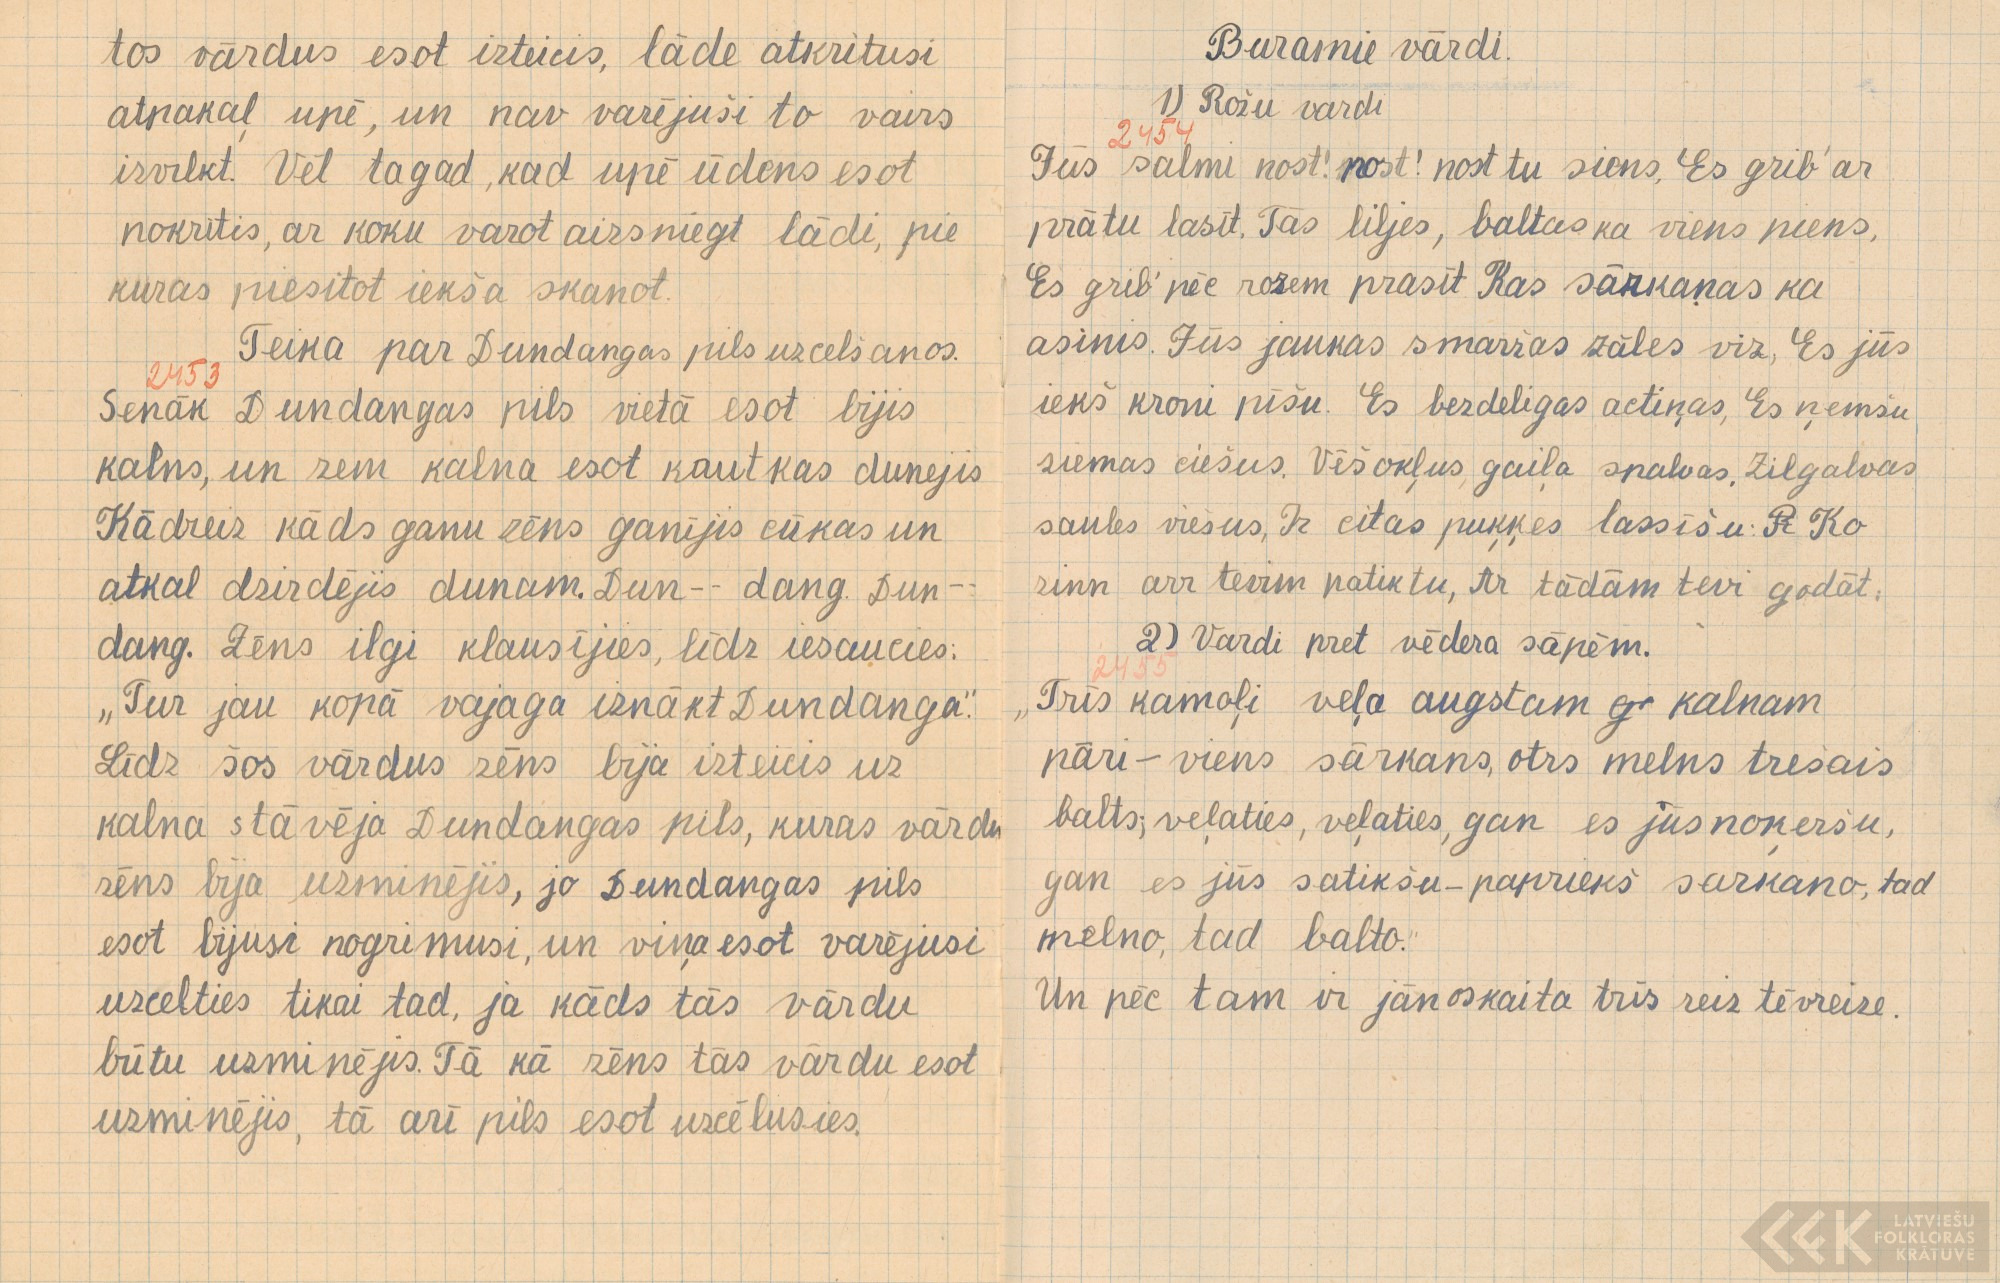 tos vārdus esot izteicis, lāde atkritusi
atpakaļ upē, un nav varējuši to vairs
izvilkt. Vēl tagad, kad upē ūdens esot
nokritis, ar koku varot aizsniegt lādi, pie
kuras piesitot iekša skanot.
Teika par Dundangas pils uzcelšanos.
2453
Senāk Dundangas pils vietā esot bijis
kalns, un zem kalna esot kautkas dunejis
Kādreiz kāds ganu zēns ganījis cūkas un
atkal dzirdējis dunam. Dun-- dang. Dun--
dang. Zēns ilgi klausījies, līdz iesaucies:
„Tur jau kopā vajaga iznākt Dundanga".
Līdz šos vārdus zēns bija izteicis uz
kalna stāvēja Dundangas pils, kuras vārdu
zēns bija uzminējis, jo Dundangas pils
esot bijusi nogrimusi, un viņa esot varējusi
uzcelties tikai tad, ja kāds tās vārdu
būtu uzminējis. Tā kā zēns tās vārdu esot
uzminējis, tā arī pils esot uzcēlusies.
Buramie vārdi.
1) Rožu vardi
2454
Jūs salmi nost! nost! nost tu siens, Es grib' ar
prātu lasīt. Tās liljes, baltas ka viens piens,
Es grib' pēc rozem prasīt Kas sārkaņas ka
asinis. Jūs jaukas smaržas zāles viz, Es jūs
iekš kroni pīšu. Es bezdeligas actiņas, Es ņemšu
ziemas ciešus. Vēšokļus, gaiļa spalvas, Zilgalvas
saules viešus, Ir citas puķķes lassīšu: Ko
zinn arr tevim patiktu, Ar tādām tevi godāt.
2) Vardi pret vēdera sāpēm.
2455
„Trīs kamoļi veļa augstam kalnam
pāri – viens sārkans, otrs melns trešais
balts; veļaties, veļaties, gan es jūs noķeršu,
gan es jūs satikšu – papriekš sarkano, tad
melno, tad balto."
Un pēc tam ir jānoskaita trīs reiz tēvreize.
LATVIEŠU
FOLKLORAS
KRĀTUVE